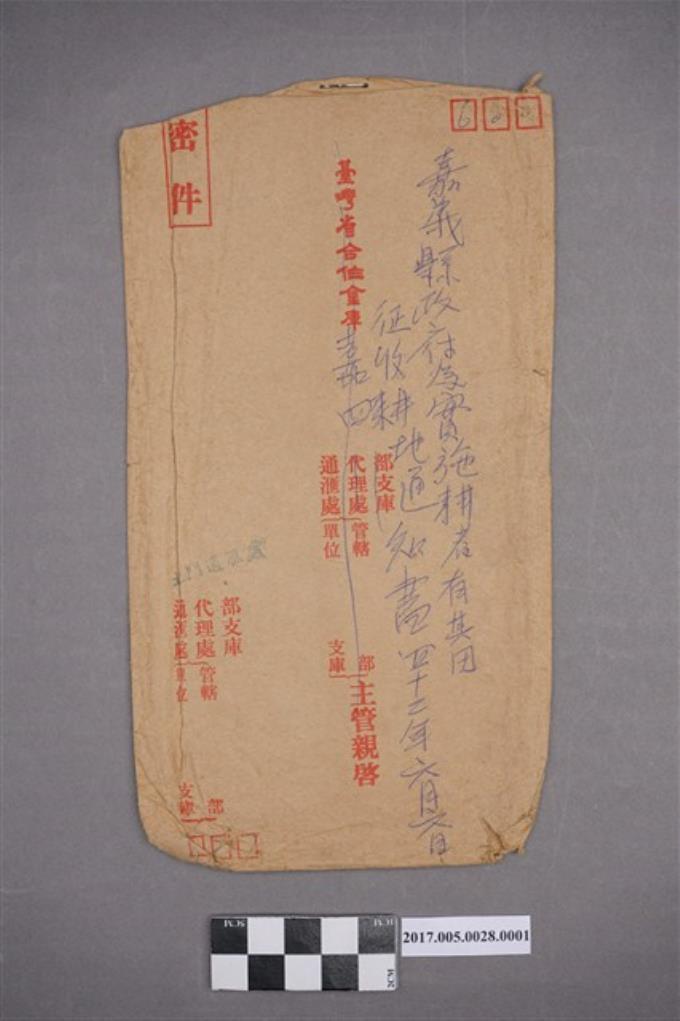 嘉義縣政府為實施耕者有其田
征收耕地通知書四十二年六月六日
臺灣省合作金庫
嘉
部支庫
代理處
通滙處
管轄
單位
部
支庫
主管親啓
密件
部支庫
代理處
通滙處
管轄
單位
部
支庫
5CM
1CM
2CM
2017.005.0028.0001